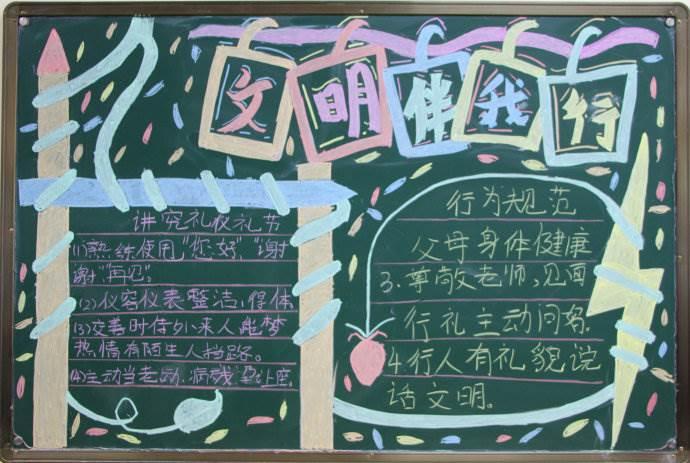 文明伴我行
讲究礼仪礼节
(1)熟练使用"您好"、"谢
谢"、"再见"。
(2)仪容仪表整洁,得体
(3)交善时待外来人能
热情有陌生人挡路。
(4)主动当老幼、病残孕让座。
行为规范
父母身体健康
3.尊敬老师,见面
行礼主动问好.
4.行人有礼貌说
话文明。